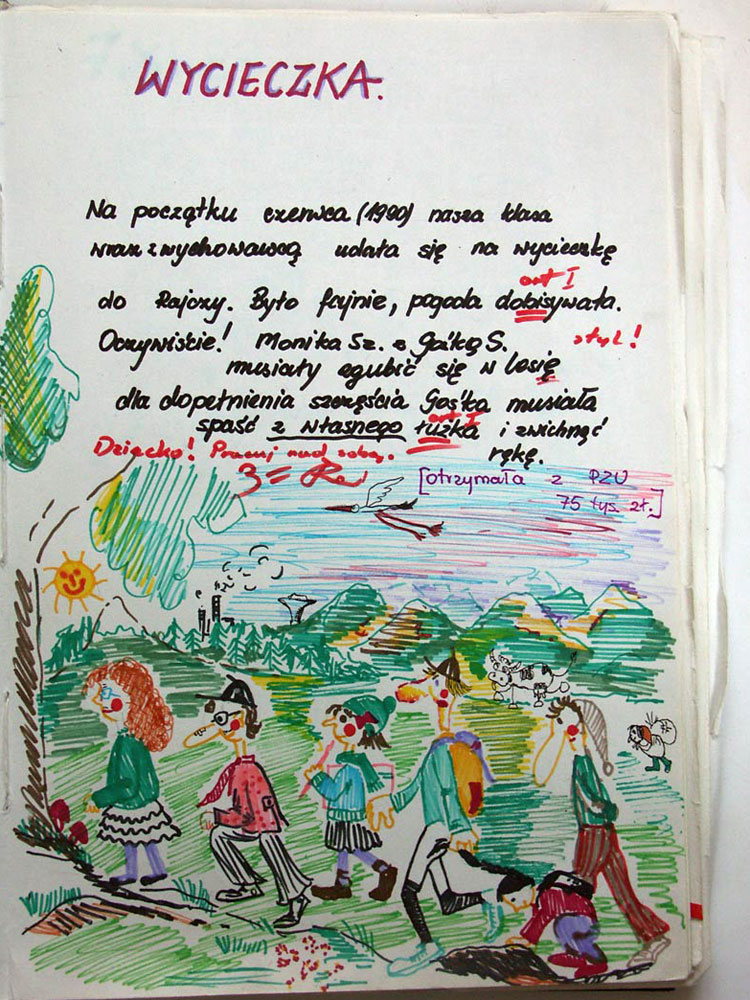 WYCIECZKA.
Na początku czerwca (1990) nasza klasa
wraz z wychowawcą udała się na wycieczkę
ort I
do Rajczy. Było fajnie, pogoda dobisywała.
Oczywiście! Monika Sz. z Gośką S. styl!
musiały zgubić się w lesię
dla dopełnienia szczęścia Gośka musiała
ort I
spaść z własnego łużka i zwichnąć
Dziecko! Pracuj nad sobą. rękę.
3=
[otrzymała z PZU
75 tys. zł.]